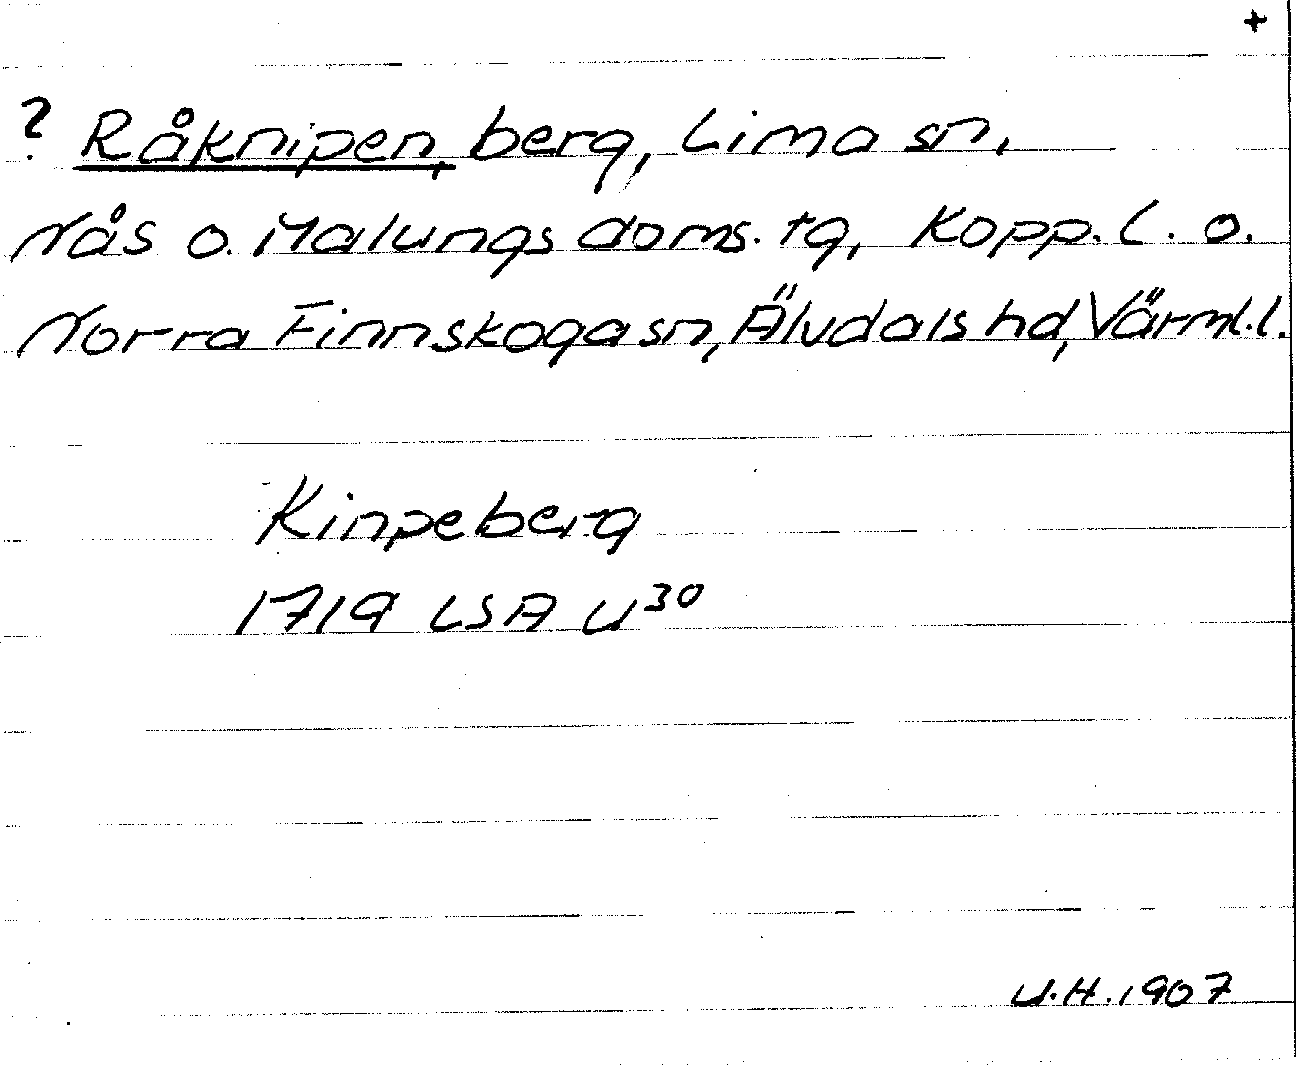 +
? Råknipen, berg, Lima sn,
Nås o. Malungs doms. tg, Kopp. l. o.
Norra Finnskoga sn, Älvdals hd, Värml. l.
Kinpeberg
1719 LSA U³⁰
U.H. 1907